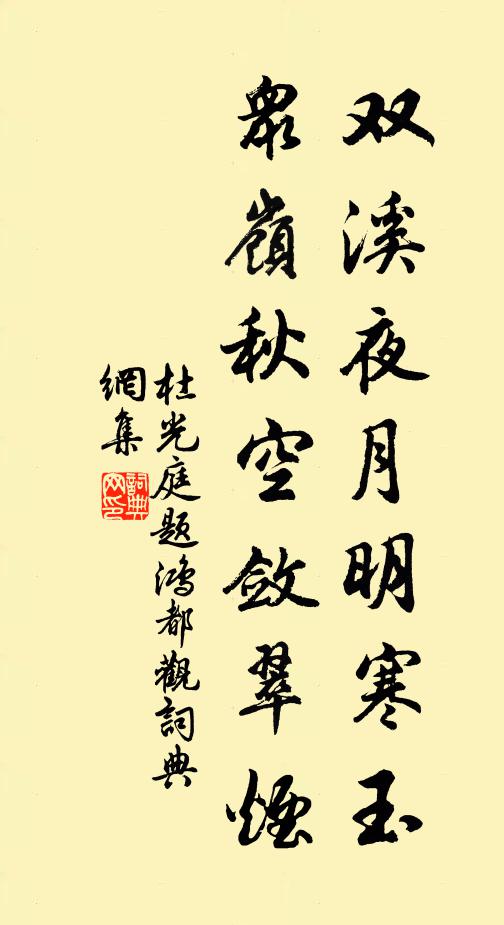 双溪夜月明寒玉
衆嶺秋空斂翠煙
杜光庭题鴻都觀詞典
網集
詞典
网印